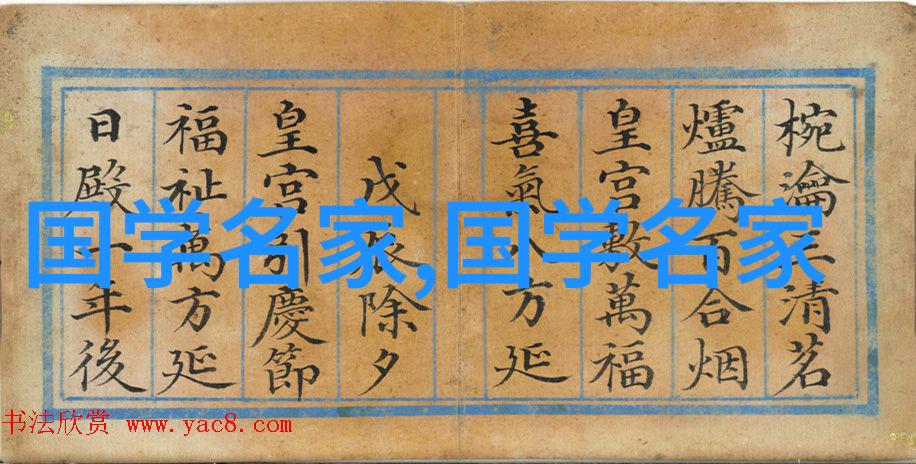 椀瀹三清茗
爐騰百合烟
皇宮敷萬福
喜氣八方延
戊辰除夕
皇宮引慶節
福祉萬方延
日殿一年後
国学名家,国学名家
书法欣赏 www.yac8.com